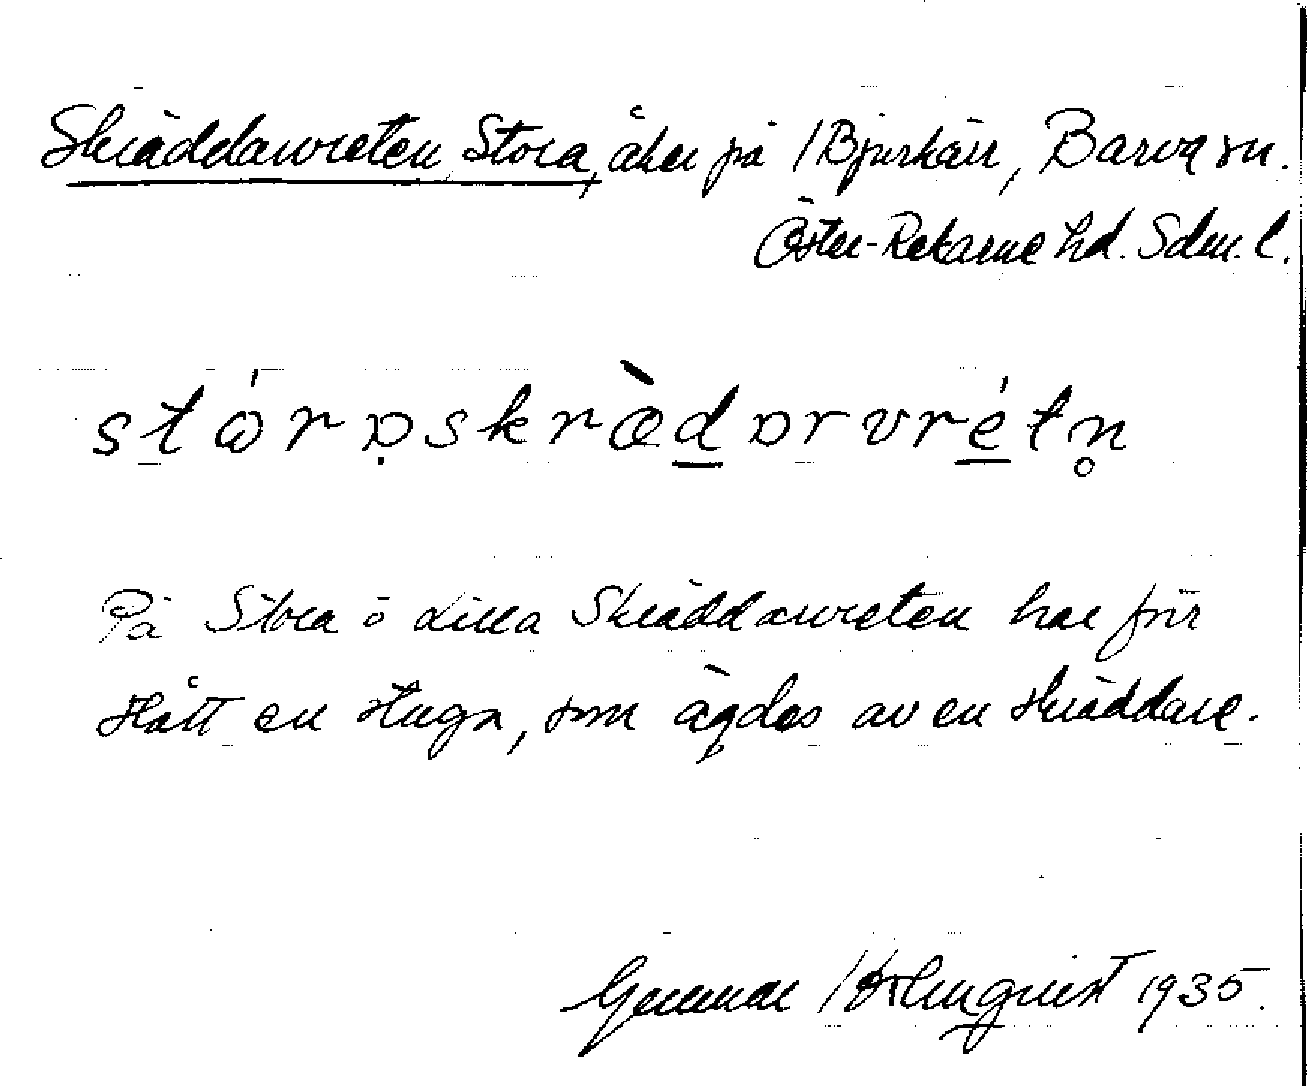 Skräddarvreten, Stora, åker på Bjurkärr, Barva sn.
Öster-Rekarne hd. Södm. l.
stórɒskrædɒrvrétn̥
På Stora o Lilla Skräddarvreten har förr
stått en stuga, som ägdes av en skräddare.
Gunnar Holmqvist 1935.